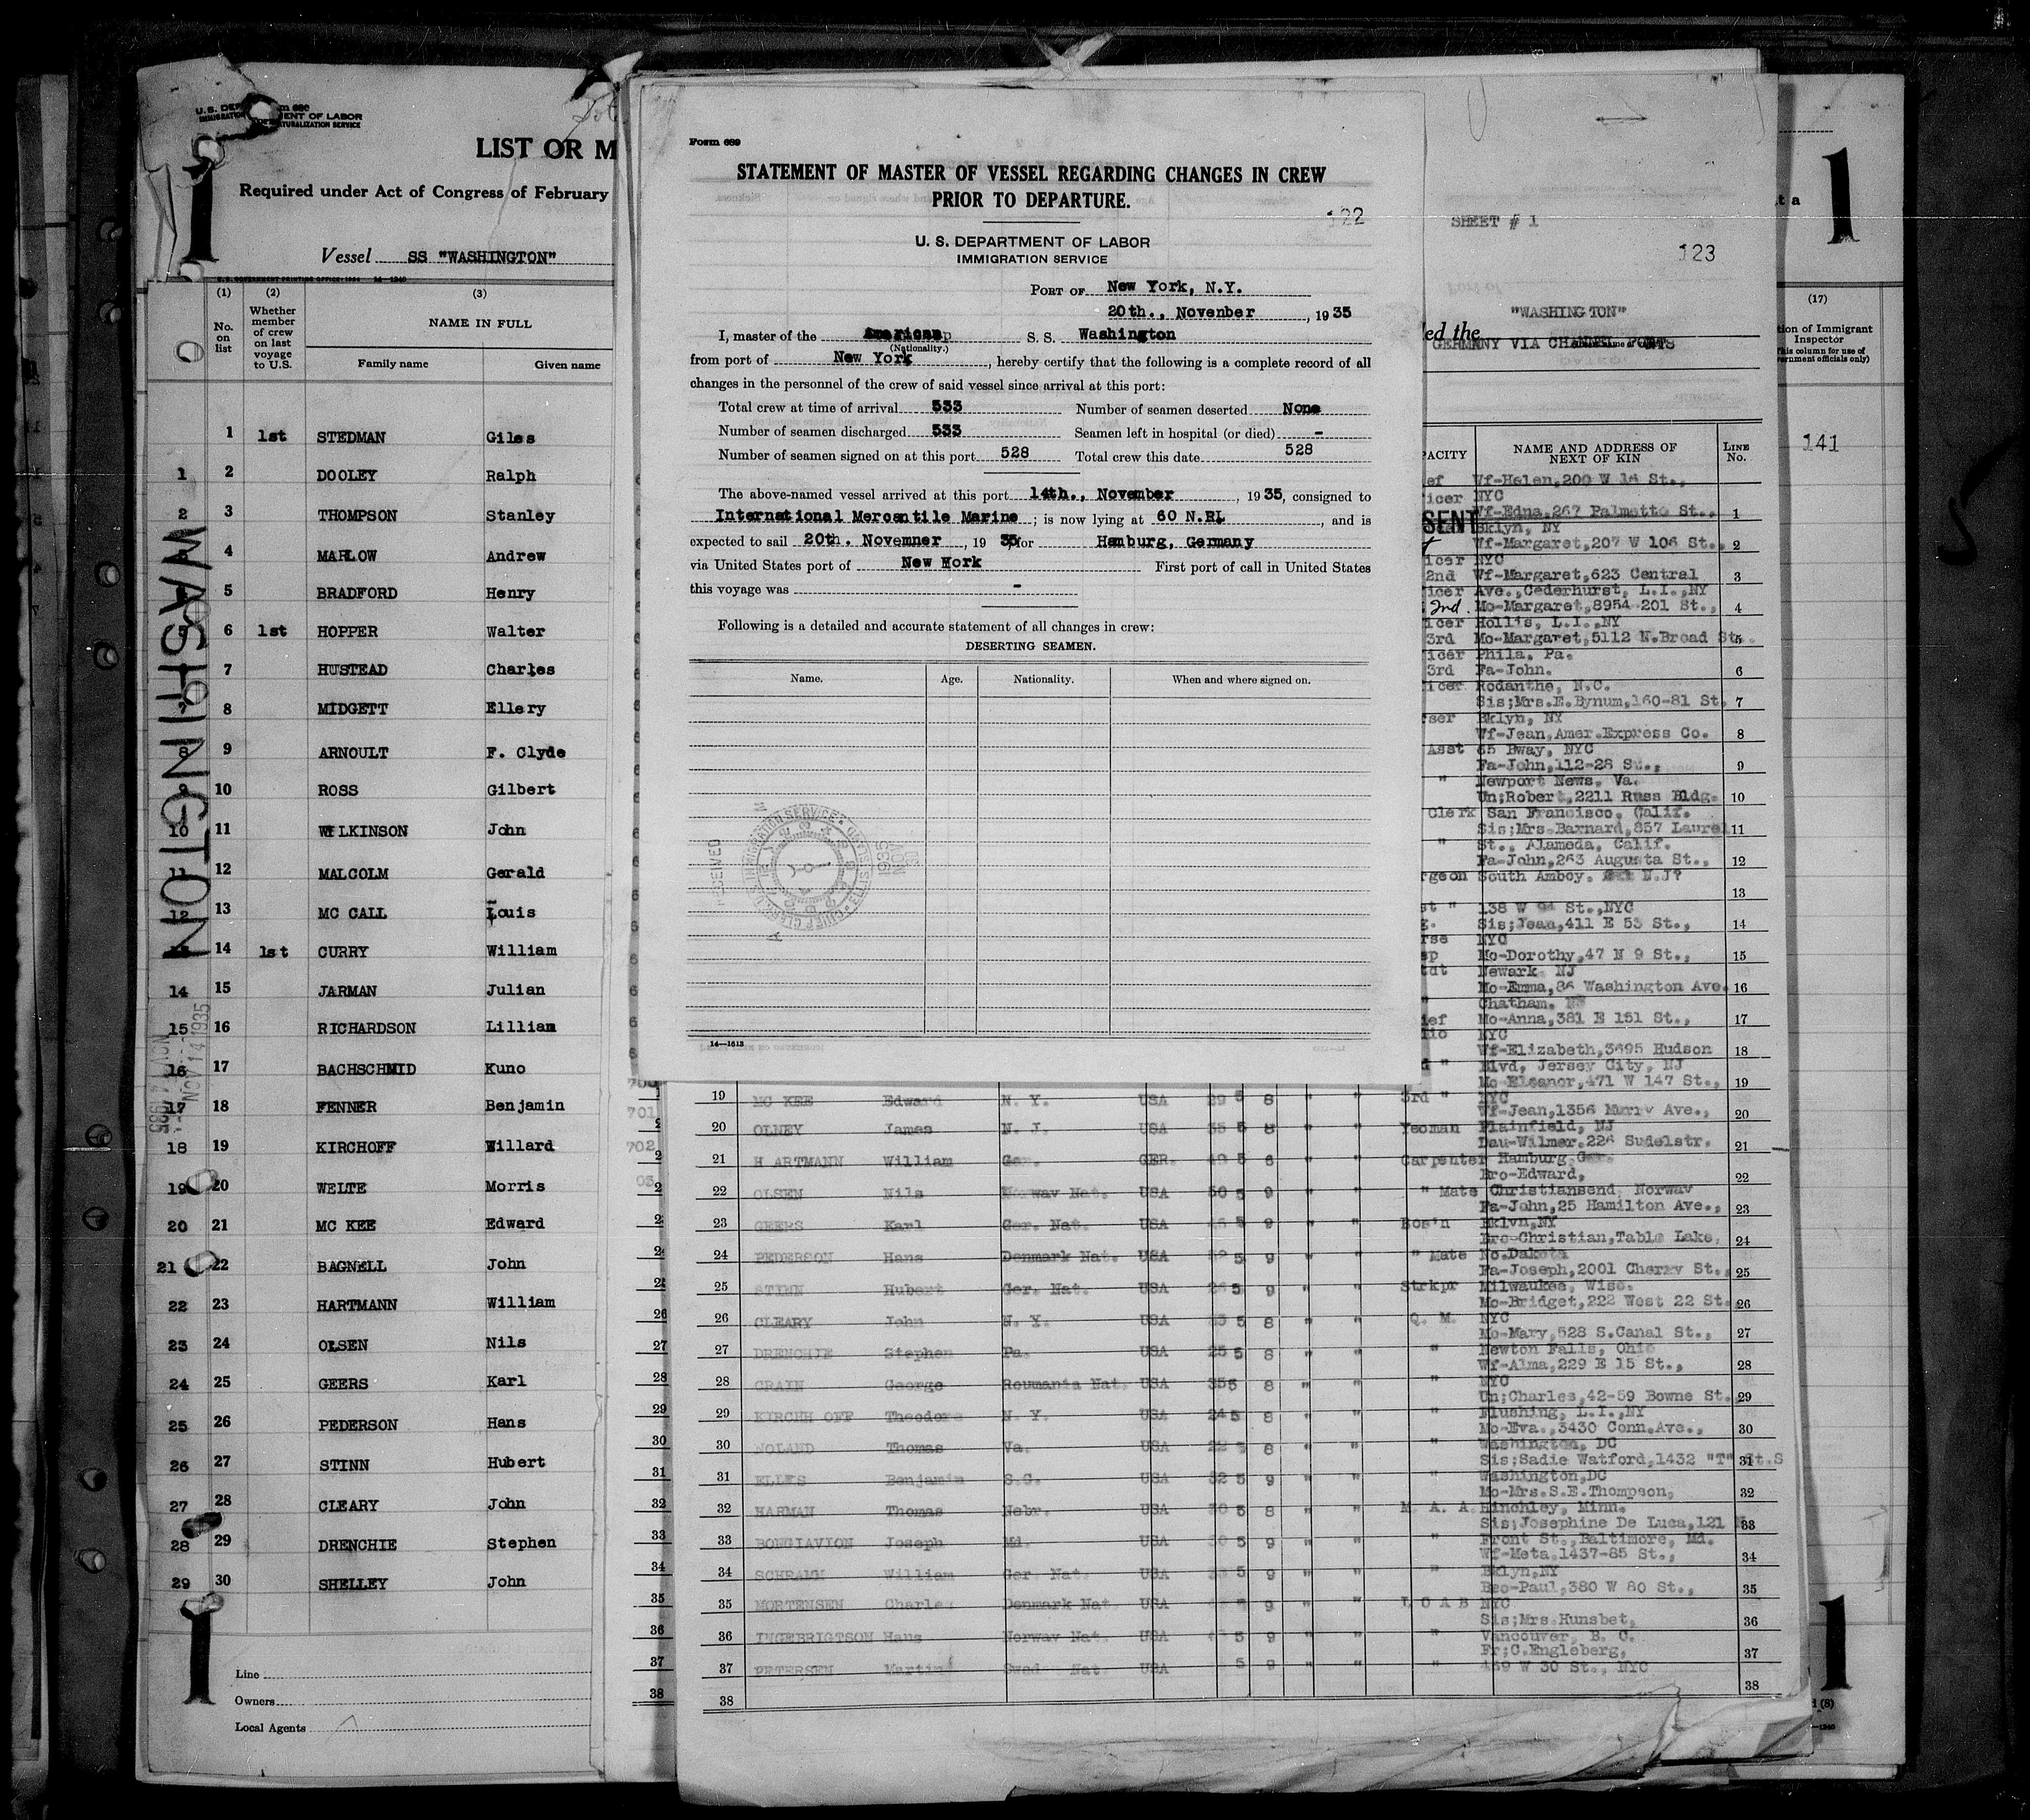 U.S. DEPARTMENT OF LABOR
IMMIGRATION NATURALIZATION SERVICE
LIST OR M
Required under Act of Congress of February
1
Vessel SS "WASHINGTON"
U. S. GOVERNMENT PRINTING OFFICE: 1934 14—1240
(1) (2) (3)
No. on list
Whether member of crew on last voyage to U.S.
NAME IN FULL
Family name Given name
1 1st STEDMAN Giles
1 2 DOOLEY Ralph
2 3 THOMPSON Stanley
4 MARLOW Andrew
5 BRADFORD Henry
6 1st HOPPER Walter
7 HUSTEAD Charles
8 MIDGETT Ellery
8 9 ARNOULT F. Clyde
10 ROSS Gilbert
10 11 WILKINSON John
11 12 MALCOLM Gerald
12 13 MC CALL Louis
14 1st CURRY William
14 15 JARMAN Julian
15 16 RICHARDSON Lillian
16 17 BACHSCHMID Kuno
17 18 FENNER Benjamin
18 19 KIRCHOFF Willard
19 20 WELTE Morris
20 21 MC KEE Edward
21 22 BAGNELL John
22 23 HARTMANN William
23 24 OLSEN Nils
24 25 GEERS Karl
25 26 PEDERSON Hans
26 27 STINN Hubert
27 28 CLEARY John
28 29 DRENCHIE Stephen
29 30 SHELLEY John
WASHINGTON
NOV 14 1935
Line
Owners
Local Agents
1
Form 689
STATEMENT OF MASTER OF VESSEL REGARDING CHANGES IN CREW
PRIOR TO DEPARTURE.
122
U. S. DEPARTMENT OF LABOR
IMMIGRATION SERVICE
PORT OF New York, N.Y.
20th., Novenber, 1935
I, master of the American S. S. Washington
(Nationality.)
from port of New York, hereby certify that the following is a complete record of all
changes in the personnel of the crew of said vessel since arrival at this port:
Total crew at time of arrival 533 Number of seamen deserted None
Number of seamen discharged 533 Seamen left in hospital (or died) -
Number of seamen signed on at this port 528 Total crew this date 528
The above-named vessel arrived at this port 14th., November, 1935, consigned to
International Mercentile Marine; is now lying at 60 N.RL, and is
expected to sail 20th. Novemner, 1935, for Hamburg, Germany
via United States port of New Work First port of call in United States
this voyage was -
Following is a detailed and accurate statement of all changes in crew:
DESERTING SEAMEN.
Name. Age. Nationality. When and where signed on.
RECEIVED
14—1613
SHEET # 1
123
"WASHINGTON"
ed the
GERMANY VIA CHANNEL PORTS
PACITY NAME AND ADDRESS OF NEXT OF KIN LINE No.
ef Wf-Helen,200 W 16 St.,
icer NYC
Wf-Edna,267 Palmetto St., 1
SENT Bklyn, NY
Wf-Margaret,207 W 106 St., 2
icer NYC
2nd Wf-Margaret,623 Central 3
icer Ave.,Cederhurst, L.I.,NY
2nd. Mo-Margaret,8954 201 St., 4
icer Hollis, L.I.,NY
3rd Mo-Margaret,5112 N.Broad St. 5
icer Phila. Pa.
3rd Fa-John. 6
icer Rodanthe, N.C.
Sis;Mrs.E.Bynum,160-81 St. 7
rser Bklyn, NY
Wf-Jean,Amer.Express Co. 8
Asst 65 Bway, NYC
Fa-John,112-28 St., 9
" Newport News, Va.
Un;Robert,2211 Russ Bldg. 10
Clerk San Francisco, Calif.
Sis;Mrs.Barnard,857 Laurel 11
" St., Alameda, Calif.
Fa-John,263 Augusta St., 12
rgeon South Amboy. N.J?
13
st " 138 W 94 St.,NYC
Sis;Jean,411 E 53 St., 14
rse NYC
Mo-Dorothy,47 N 9 St., 15
tdt Newark NJ
Mo-Emma,86 Washington Ave. 16
Chatham.
ief Mo-Anna,381 E 151 St., 17
NYC
Wf-Elizabeth,3695 Hudson 18
d " Blvd, Jersey City, NJ
Mo-Eleanor,471 W 147 St., 19
19 MC KEE Edward N. Y. USA 29 5 8 " " 3rd " NYC
Wf-Jean,1356 Murry Ave., 20
20 OLNEY James N. J. USA 35 5 8 " " Yeoman Plainfield, NJ
Dau-Wilmer.226 Sudelstr. 21
21 HARTMANN William Ger. GER. 49 5 6 " " Carpenter Hamburg Ger.
Bro-Edward, 22
22 OLSEN Nils Norway Nat. USA 50 5 9 " " " Mate Christiansend, Norway
Fa-John,25 Hamilton Ave., 23
23 GEERS Karl Ger. Nat. USA 5 9 " " Bos'n Bklyn,NY
Bro-Christian,Table Lake, 24
24 PEDERSON Hans Denmark Nat. USA 5 9 " " " Mate No.Dakota
Fa-Joseph,2001 Cherry St., 25
25 STINN Hubert Ger. Nat. USA 26 5 9 " " Strkpr Milwaukee, Wisc.
Mo-Bridget,222 West 22 St. 26
26 CLEARY John N. Y. USA 5 8 " " Q. M. NYC
Mo-Mary,528 S.Canal St., 27
27 DRENCHIE Stephen Pa. USA 25 5 8 " " " Newton Falls, Ohio
Wf-Alma,229 E 15 St., 28
28 CRAIN George Roumania Nat. USA 35 5 8 " " " NYC
Un;Charles,42-59 Bowne St. 29
29 KIRCHHOFF Theodore N. Y. USA 24 5 8 " " " Flushing, L.I.,NY
Mo-Eva.,3430 Conn.Ave., 30
30 NOLAND Thomas Va. USA 8 " " " Washington, DC
Sis;Sadie Watford,1432 "T" St.S 31
31 ELLIS Benjamin S.C. USA 32 5 9 " " " Washington,DC
Mo-Mrs.S.E.Thompson, 32
32 HARMAN Thomas Nebr. USA 30 5 8 " " M. A. A. Hinchley, Minn.
Sis;Josephine De Luca,121 33
33 BONGIAVION Joseph Md. USA 5 9 " " " Front St., Baltimore, Md.
Wf-Meta.1437-85 St., 34
34 William Ger. Nat. USA 5 9 " " " Bklyn,NY
Bro-Paul,380 W 80 St., 35
35 MORTENSEN Charles Denmark Nat. USA 9 " " NYC
Sis;Mrs.Hunsbet, 36
36 INGEBRIGTSON Hans Norway Nat. USA 5 9 " " " Vancouver, B. C.
Fr;C.Engleberg, 37
37 PETERSEN Martin Swed Nat. USA 5 9 " " " 459 W 30 St., NYC
38 38
701
702
1
(17)
tion of Immigrant
Inspector
(This column for use of
Government officials only)
141
5
1